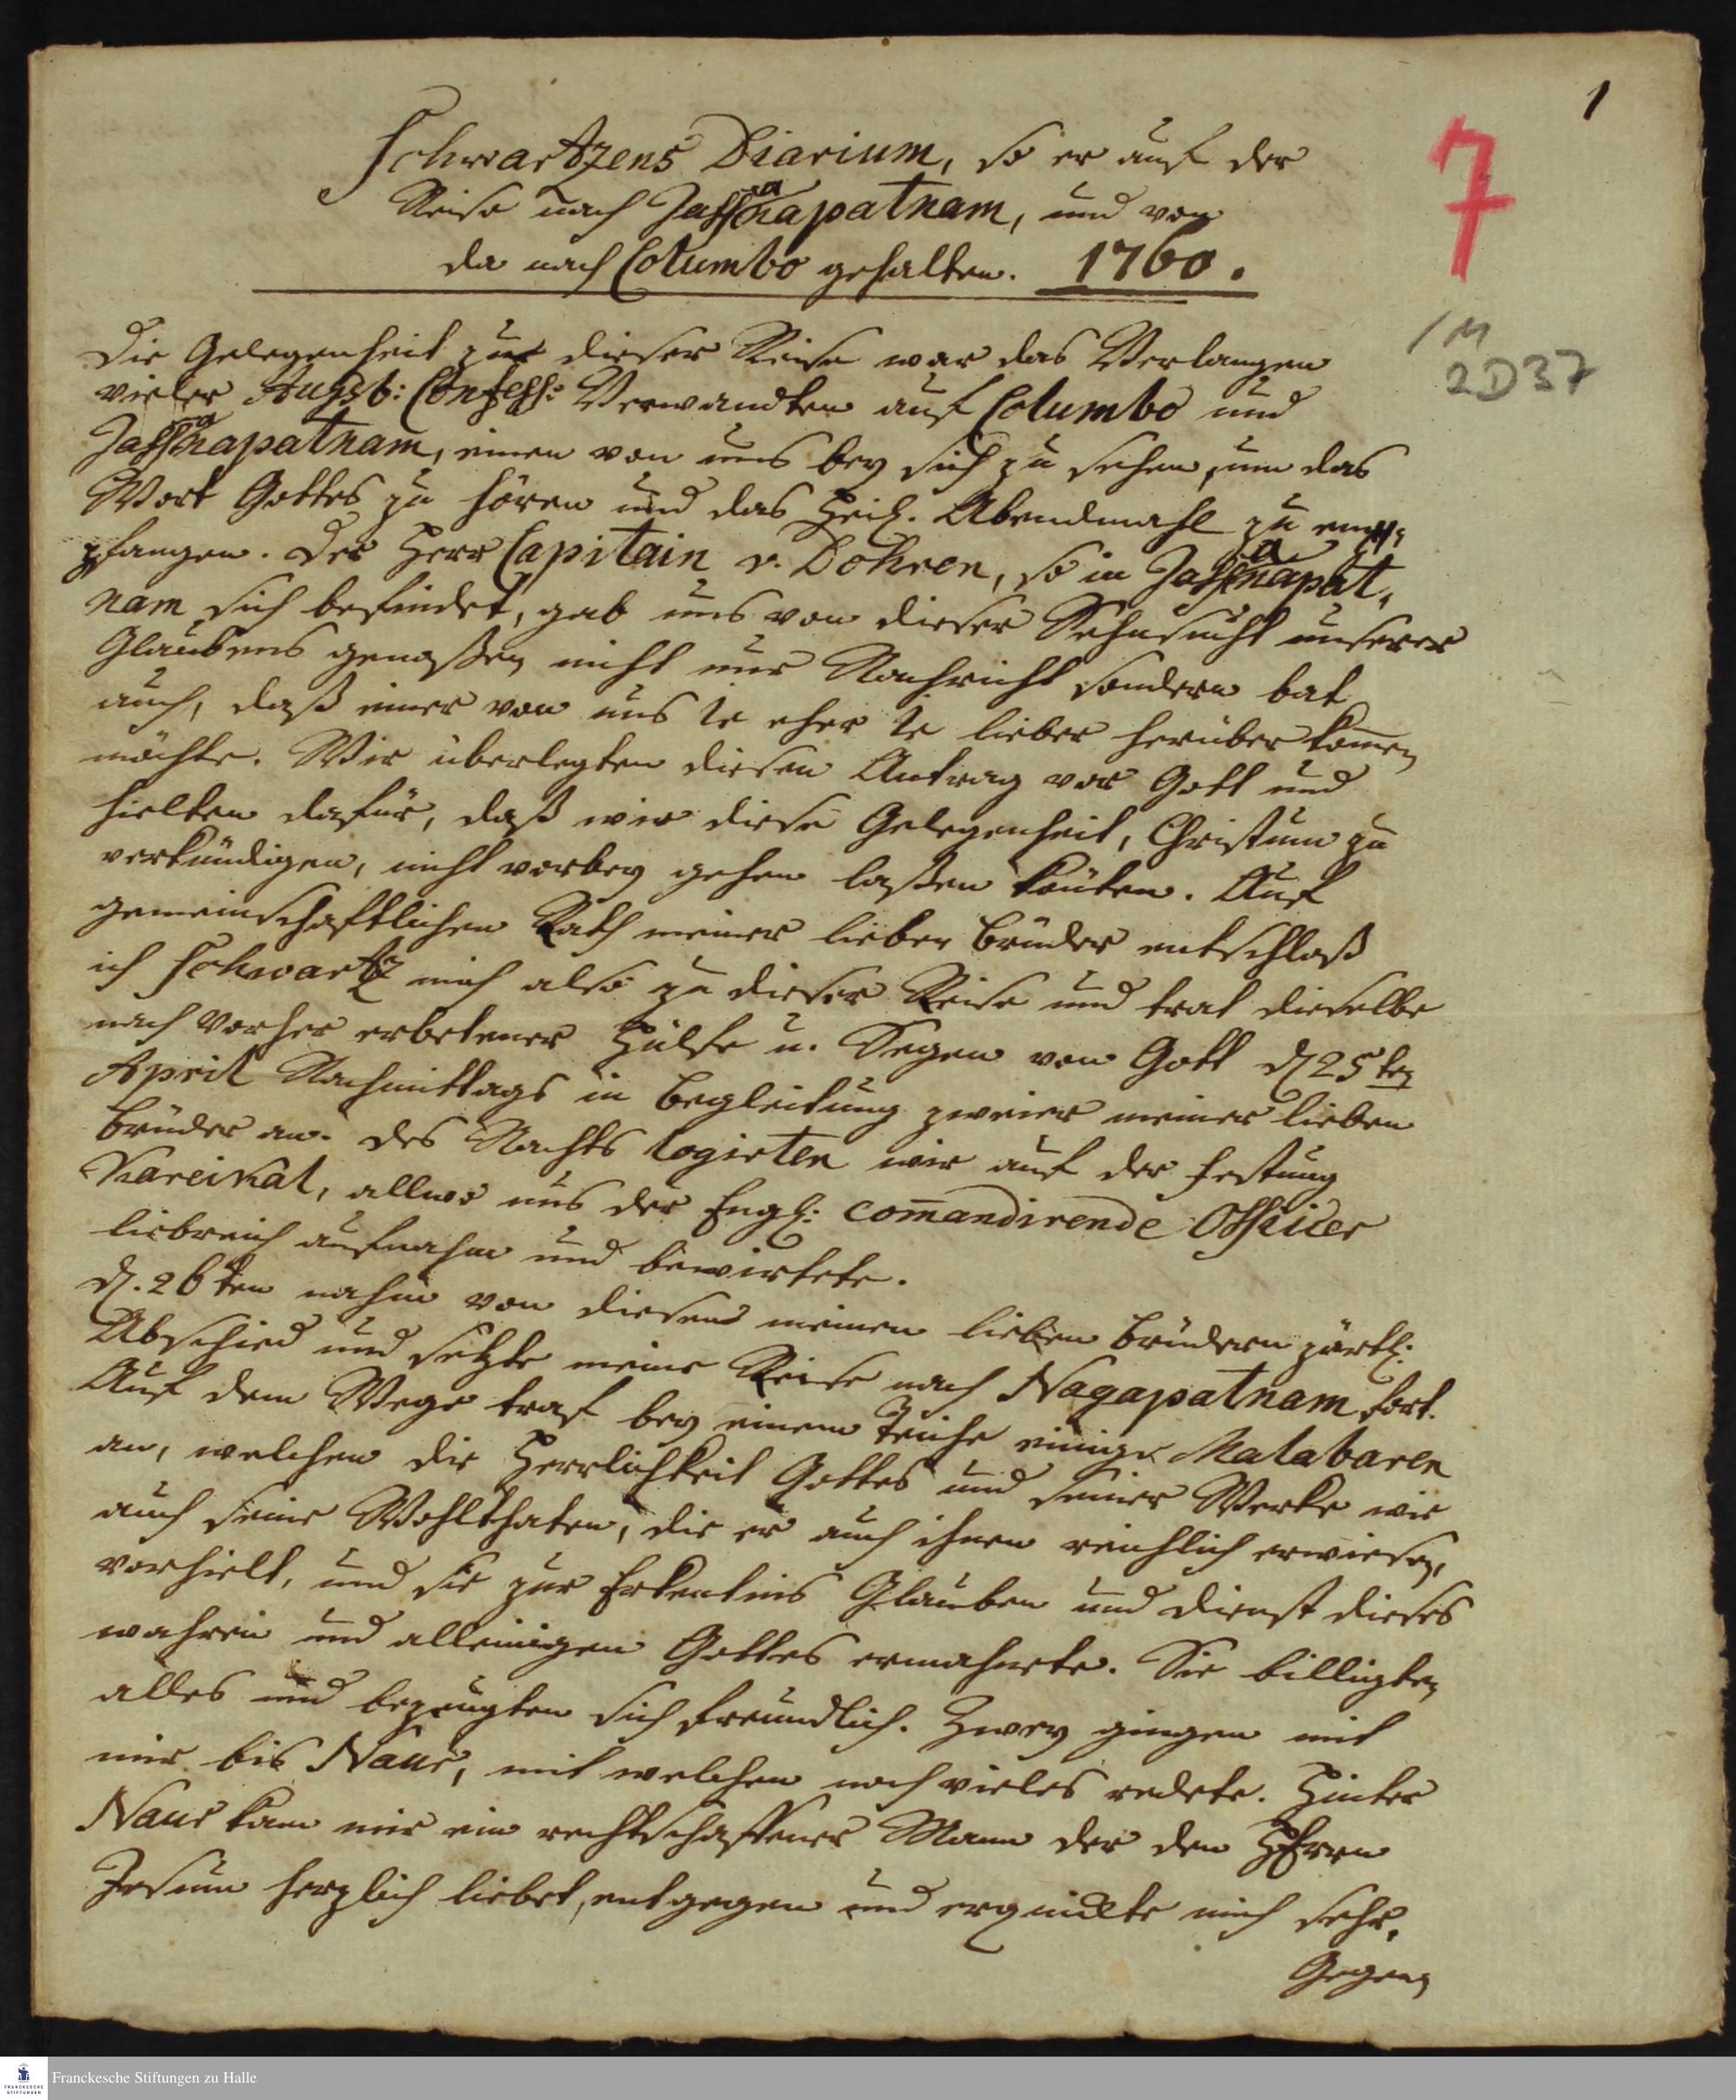 1
7
1 M
2 D 37
Schwartzens Diarium, so er auf der
Reise nach Jaffanapatnam, und von
da nach Columbo gehalten. 1760.
Die Gelegenheit zu dieser Reise war das Verlangen
vieler Augsb: Confess: Verwandten auf Columbo und
Jaffanapatnam, einen von uns bey sich zu sehen, um das
Wort Gottes zu hören und das Heil. Abendmahl zu em-
pfangen. Der Herr Capitain v. Dohren, so in Jaffanapat-
nam sich befindet, gab uns von dieser Sehnsucht unserer
Glaubens genoßen nicht nur Nachricht sondern bat
auch, daß einer von uns ie eher ie lieber herüber kom̄en
möchte. Wir überlegten diesen Antrag vor Gott und
hielten dafür, daß wir diese Gelegenheit, Christum zu
verkündigen, nicht vorbey gehen laßen könten. Auf
gemeinschaftlichen Rath meiner lieber Brüder entschloß
ich Schwartz mich also zu dieser Reise und trat dieselbe
nach vorher erbetener Hülfe u. Segen von Gott d 25ten
April Nachmittags in Begleitung zweier meiner lieben
Brüder an. Des Nachts logirten wir auf der Festung
Kareikal, allwo uns der Engl: com̄andirende Officier
liebreich aufnahm und bewirtete.
d. 26ten nahm von diesen meinen lieben Brüdern zärtl:
Abschied und setzte meine Reise nach Nagapatnam fort.
Auf dem Wege traf bey einem Teiche einige Malabaren
an, welchen die Herrlichkeit Gottes und seiner Werke wie
auch seine Wohlthaten, die er auch ihnen reichlich erwiesen,
vorhielt, und sie zur Erkentnis Glauben und Dienst dieses
wahren und alleinigen Gottes ermahnete. Sie billigten
alles und bezeugten sich freundlich. Zwey gingen mit
mir bis Naur, mit welchen noch vieles redete. Hinter
Naur kam mir ein rechtschaffener Mann der den HErrn
Jesum herzlich liebet, entgegen und erquickte mich sehr.
Gegen
Franckesche Stiftungen zu Halle
FRANCKESCHE
STIFTUNGEN